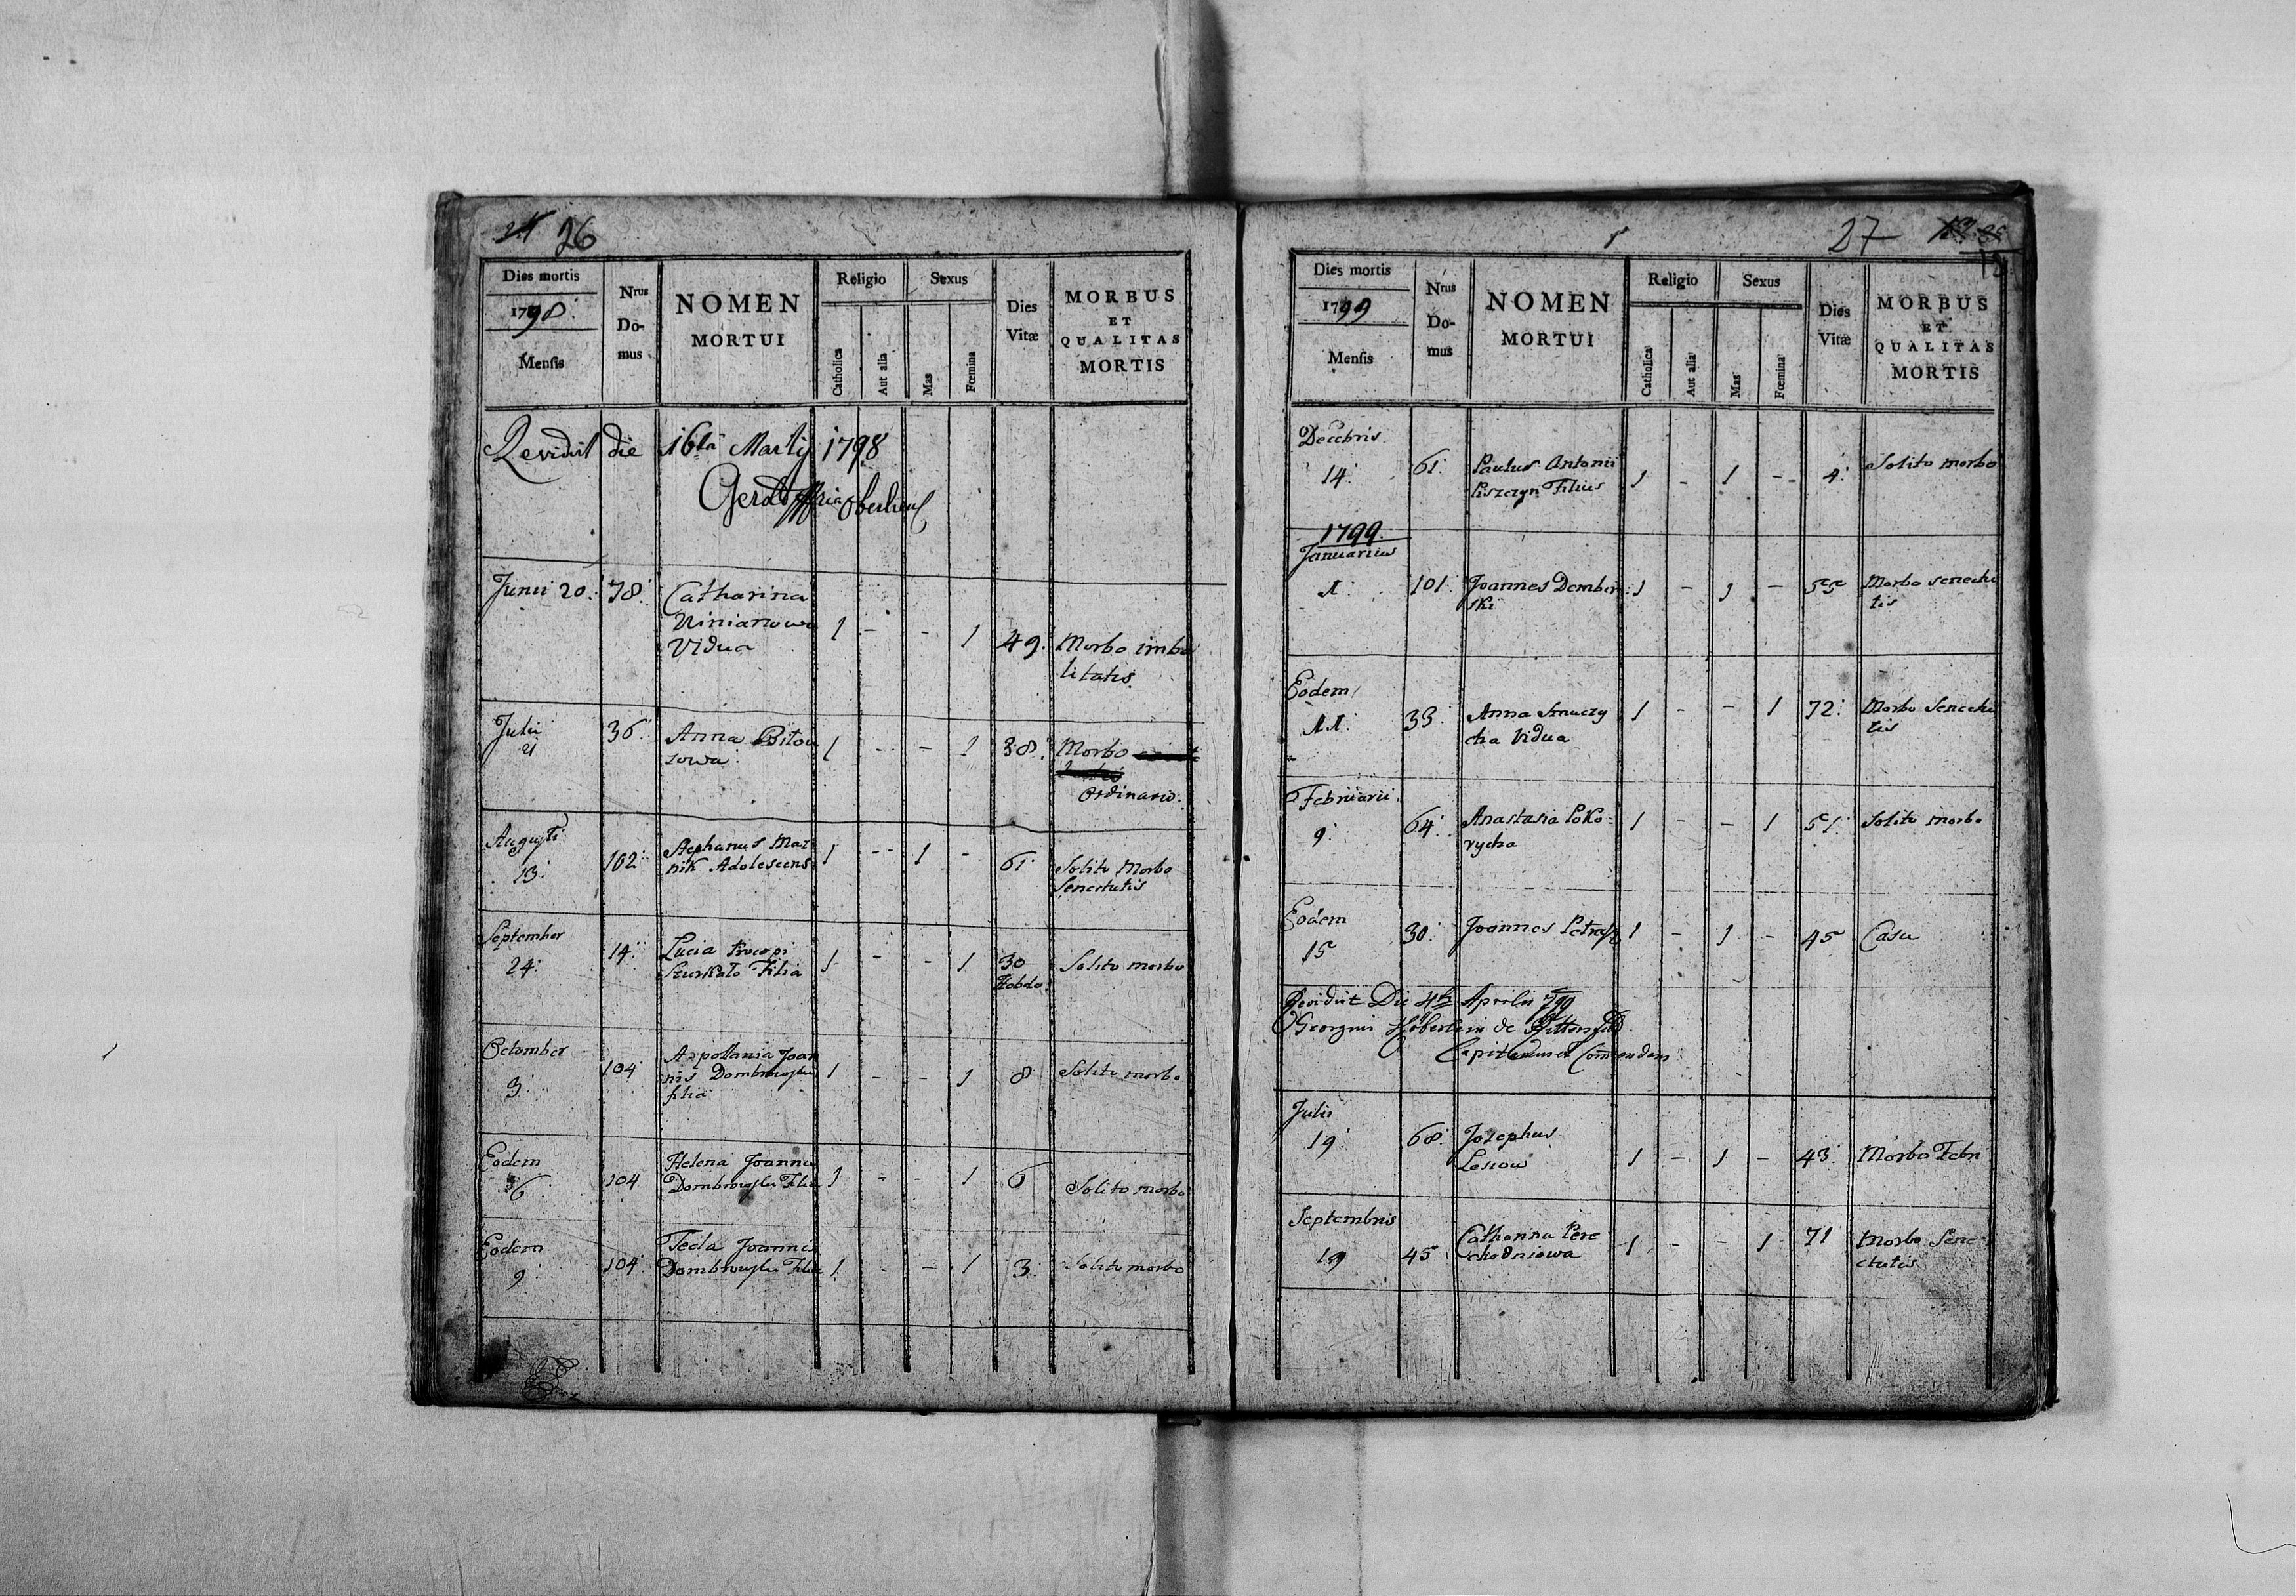 26
Dies mortis
1798.
Mensis
Nrus
Do-
mus
NOMEN
MORTUI
Religio
Catholica
Aut alia
Sexus
Mas
Fœmina
Dies
Vitæ
MORBUS
ET
QUALITAS
MORTIS
Revidit die 16ta Martij 1798
Junii 20. 78.
Catharina
Vidua
1 - - 1 49.
Morbo imbe
litatis.
Julii
21
36.
Anna
sowa.
1 - - 1 38.
Morbo
Ordinario.
Augusti
13.
102.
Stephanus Maz
nik Adolescens
1 - 1 - 61
Solito Morbo
Senectutis
September
24.
14.
Lucia Procopi
Szurkalo Filia
1 - - 1 30
Hebdo:
Solito morbo
Octomber
3.
104
Appollania Joan
nis Dombrowski
filia
1 - - 1 8
Solito morbo
Eodem
6
104
Helena Joannis
Dombrowski Filia
1 - - 1 6
Solito morbo
Eodem
9.
104.
Tecla Joannis
Dombrowski Filia
1 - - 1 3.
Solito morbo
27
Dies mortis
1799
Mensis
Nrus
Do-
mus
NOMEN
MORTUI
Religio
Catholica
Aut alia
Sexus
Mas
Fœmina
Dies
Vitæ
MORBUS
ET
QUALITAS
MORTIS
Decebris
14.
61.
Paulus Antonii
Piszczyn Filius
1 - 1 - 4.
Solito morbo
1799.
Januarius
1.
101.
Joannes Dembin
ski
1 - 1 - 55
Morbo senectu
tis
Eodem
11.
33.
Anna Smaczy
cha Vidua
1 - - 1 72.
Morbo Senectu
tis
Februarii
9.
64.
Anastasia Poko-
rycha
1 - - 1 51.
Solito morbo
Eodem
15
30.
Joannes Petrasz
1 - 1 - 45
Casu
Revidit Die 4ta Aprilis 799
Julii
19.
68.
Josephus
1 - 1 - 43.
Morbo Febri
Septembris
19
45
Catharina Pere
chodniowa
1 - - 1 71
Morbo Sene
ctutis